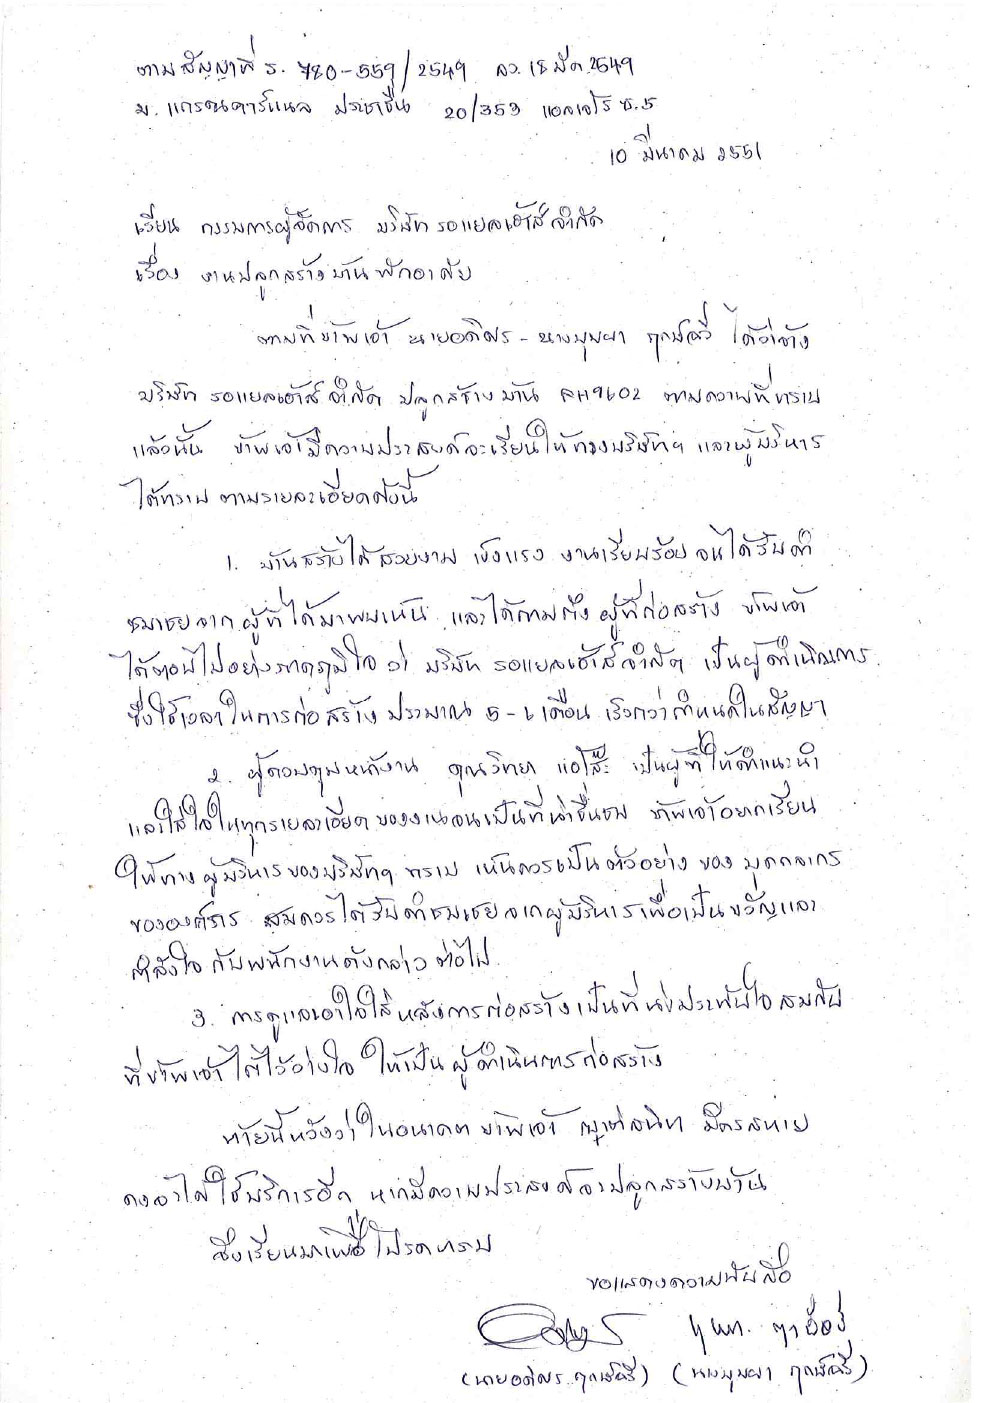 ตามสัญญาที่ ร. 780-559/2549 ลว. 18 มีค. 2549
ม. แกรนคาร์แนล ประชาชื่น 20/353 แอลเจโร ซ.5
10 มีนาคม 2551
เรียน กรรมการผู้จัดการ บริษัท รอแยลเฮ้าส์ จำกัด
เรื่อง งานปลูกสร้างบ้านพักอาศัย
ตามที่ข้าพเจ้า นายอดิศร - นางบุษบา ฤกษ์ฉวี ได้ว่าจ้าง
บริษัท รอแยลเฮ้าส์ จำกัด ปลูกสร้างบ้าน RH9602 ตามความที่ทราบ
แล้วนั้น ข้าพเจ้ามีความประสงค์จะเรียนให้ทางบริษัทฯ และผู้บริหาร
ได้ทราบ ตามรายละเอียดดังนี้
1. บ้านสร้างได้สวยงาม แข็งแรง งานเรียบร้อย จนได้รับคำ
ชมเชยจาก ผู้ที่ได้มาพบเห็น และได้ถามถึง ผู้ที่ก่อสร้าง ข้าพเจ้า
ได้ตอบไปอย่างภาคภูมิใจว่า บริษัท รอแยลเฮ้าส์ จำกัด เป็นผู้ดำเนินการ
ซึ่งใช้เวลาในการก่อสร้าง ประมาณ 5-6 เดือน เร็วกว่ากำหนดในสัญญา
2. ผู้ควบคุมหน้างาน คุณวิทยา แอโส๊ะ เป็นผู้ที่ให้คำแนะนำ
และใส่ใจในทุกรายละเอียดของงานจนเป็นที่น่าชื่นชม ข้าพเจ้าอยากเรียน
ให้ทางผู้บริหารของบริษัทฯ ทราบ เห็นควรเป็นตัวอย่าง ของ บุคคลากร
ขององค์กร สมควรได้รับคำชมเชยจากผู้บริหารเพื่อเป็นขวัญและ
กำลังใจ กับพนักงานดังกล่าวต่อไป
3. การดูแลเอาใจใส่หลังการก่อสร้างเป็นที่น่าประทับใจ สมกับ
ที่ข้าพเจ้าได้ไว้วางใจ ให้เป็น ผู้ดำเนินการก่อสร้าง
ท้ายนี้หวังว่าในอนาคต ข้าพเจ้า ญาติสนิท มิตรสหาย
คงจะได้ใช้บริการอีก หากมีความประสงค์จะปลูกสร้างบ้าน
จึงเรียนมาเพื่อโปรดทราบ
ขอแสดงความนับถือ
(นายอดิศร ฤกษ์ฉวี) (นางบุษบา ฤกษ์ฉวี)